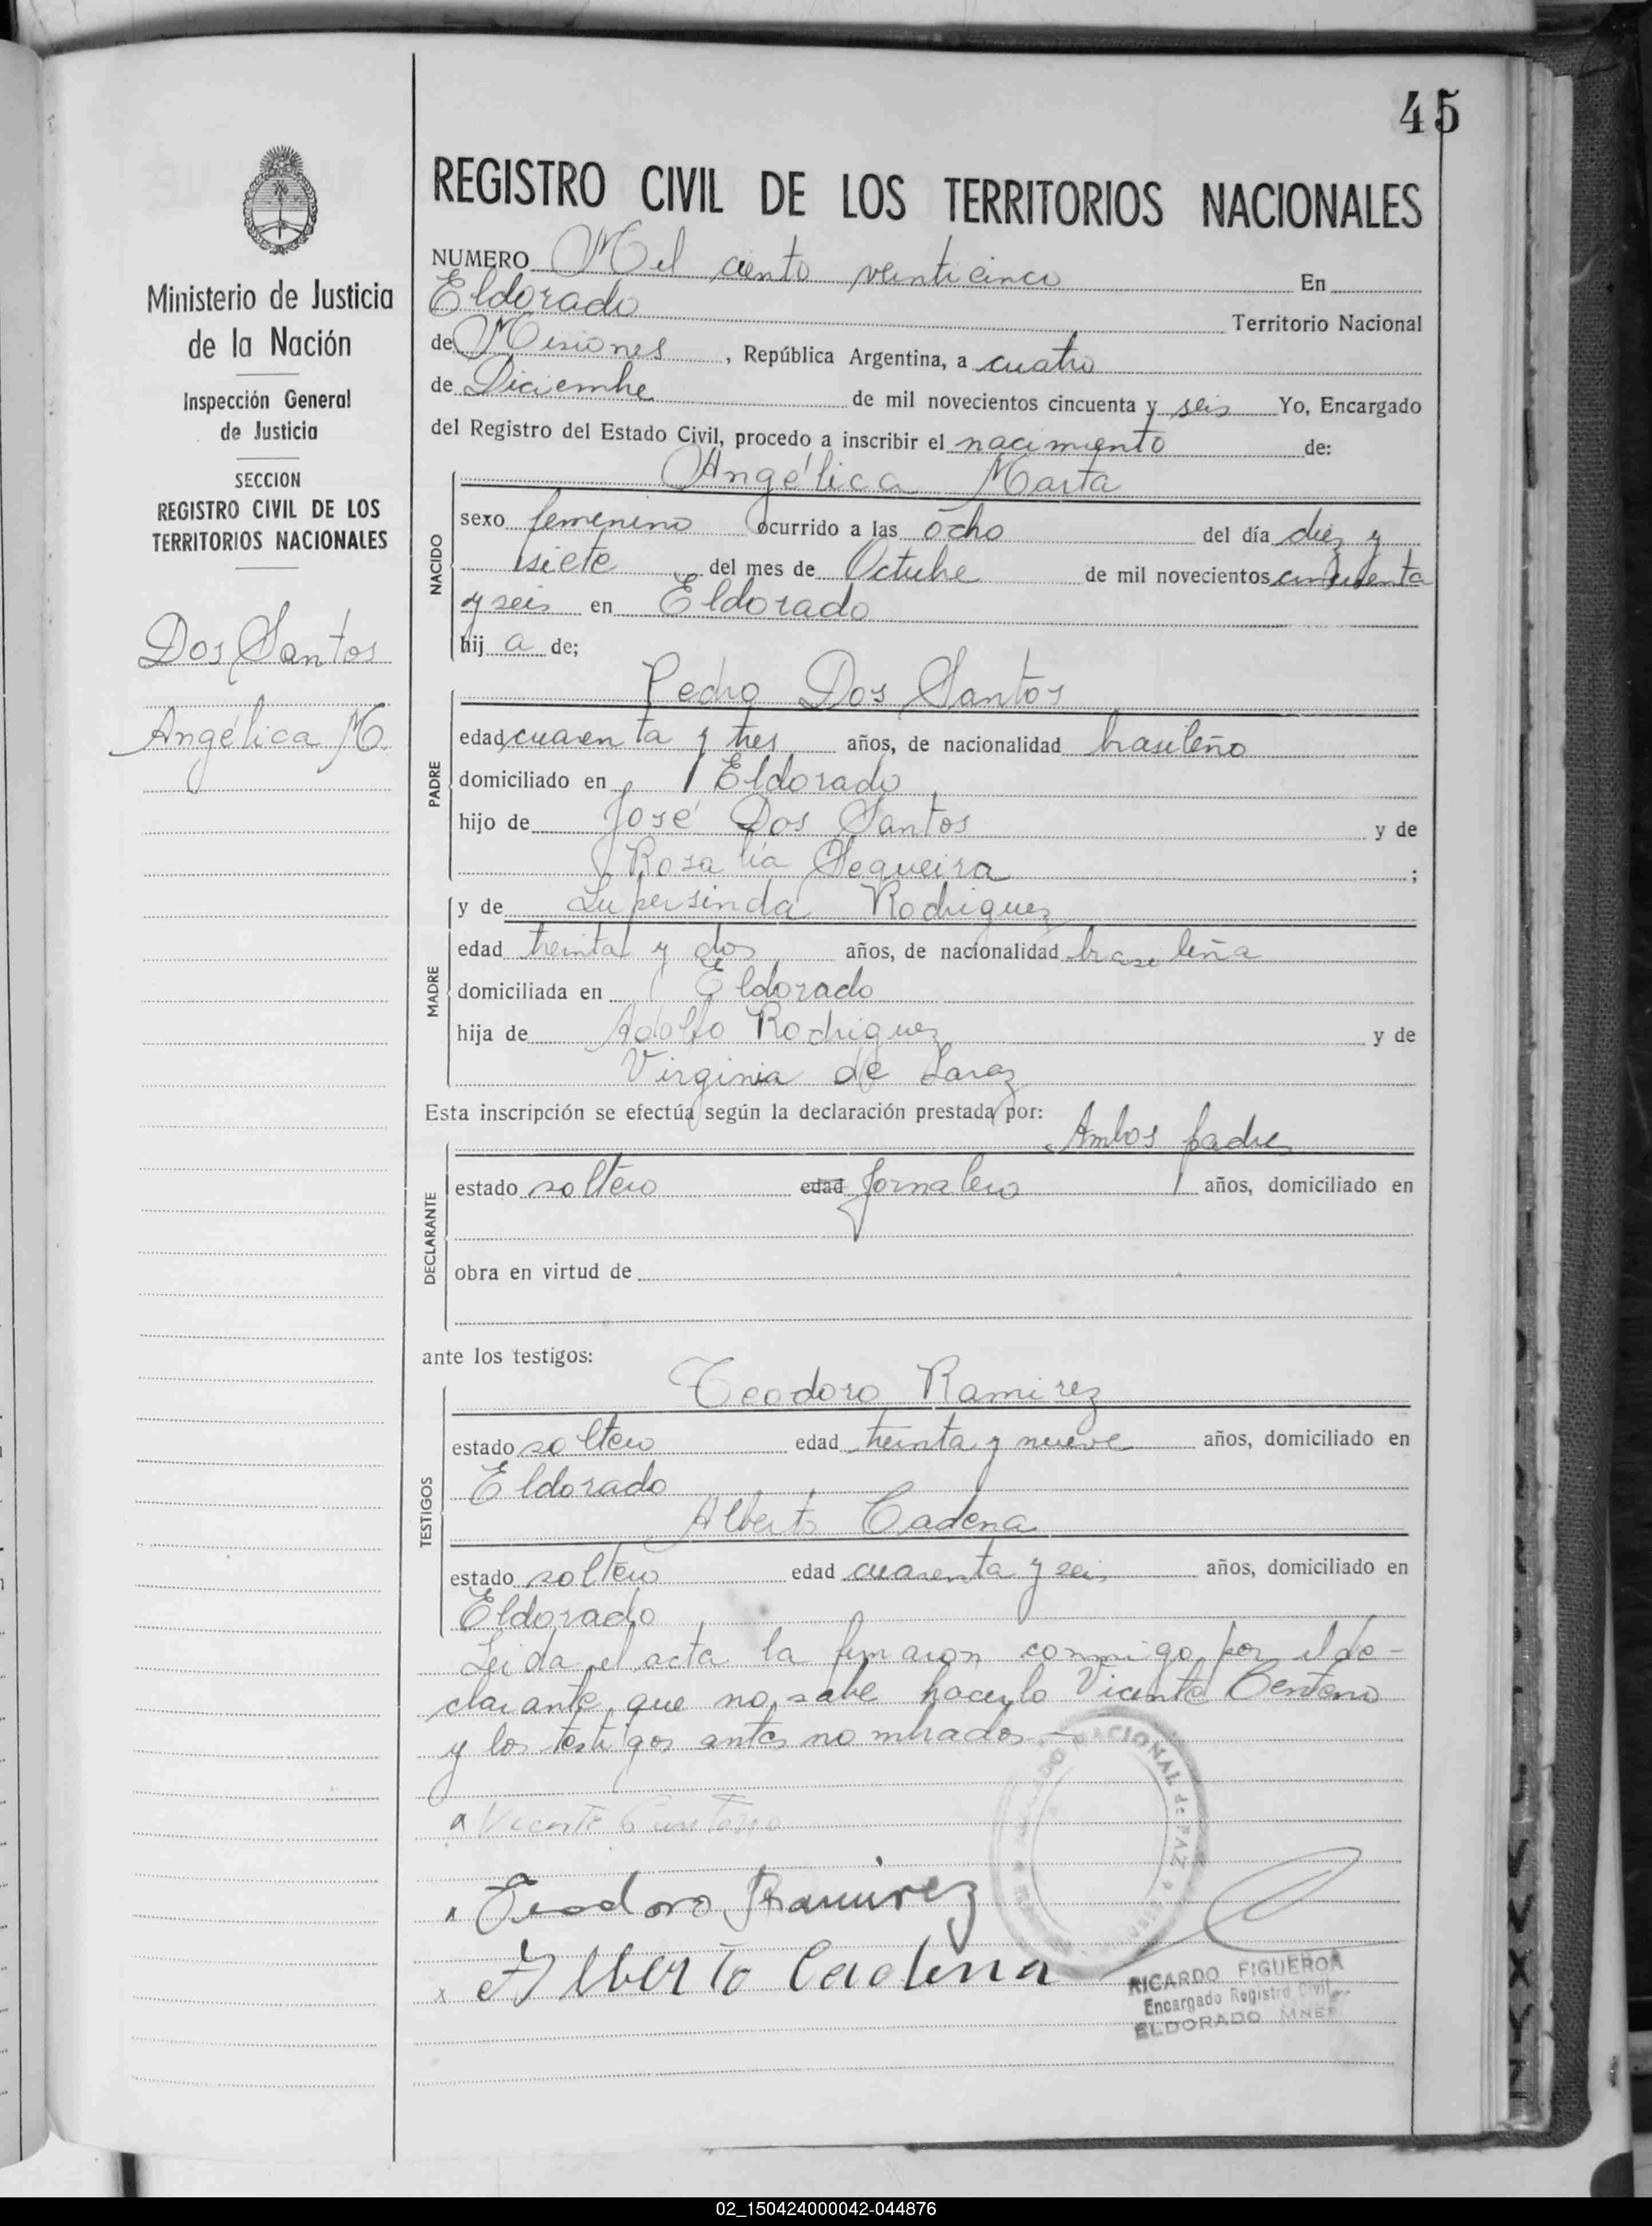 45
Ministerio de Justicia
de la Nación
Inspección General
de Justicia
SECCION
REGISTRO CIVIL DE LOS
TERRITORIOS NACIONALES
Dos Santos
Angélica M.
REGISTRO CIVIL DE LOS TERRITORIOS NACIONALES
NUMERO Mil ciento veinticinco En
Eldorado Territorio Nacional
de Misiones, República Argentina, a cuatro
de Diciembre de mil novecientos cincuenta y seis Yo, Encargado
del Registro del Estado Civil, procedo a inscribir el nacimiento de:
Angélica Marta
NACIDO
sexo femenino ocurrido a las ocho del día diez y
siete del mes de Octubre de mil novecientos cincuenta
y seis en Eldorado
hij a de;
Pedro Dos Santos
PADRE
edad cuarenta y tres años, de nacionalidad brasileño
domiciliado en Eldorado
hijo de José Dos Santos y de
Rosalía Sequeira ;
y de Lupersinda Rodriguez
MADRE
edad treinta y dos años, de nacionalidad brasileña
domiciliada en Eldorado
hija de Adolfo Rodriguez y de
Virginia de Laraz
Esta inscripción se efectúa según la declaración prestada por:
Ambos padres
DECLARANTE
estado soltero edad Jornalero años, domiciliado en
obra en virtud de
ante los testigos:
Teodoro Ramirez
TESTIGOS
estado soltero edad treinta y nueve años, domiciliado en
Eldorado
Alberto Cadena
estado soltero edad cuarenta y seis años, domiciliado en
Eldorado
Leida el acta la firmaron conmigo, por el de-
clarante, que no sabe hacerlo Vicente Centeno
y los testigos antes nombrados.-
x Vicente
x Teodoro Ramirez
x Alberto Cadena
NACIONAL de PAZ
RICARDO FIGUEROA
Encargado Registro Civil
ELDORADO MNES.
02_150424000042-044876